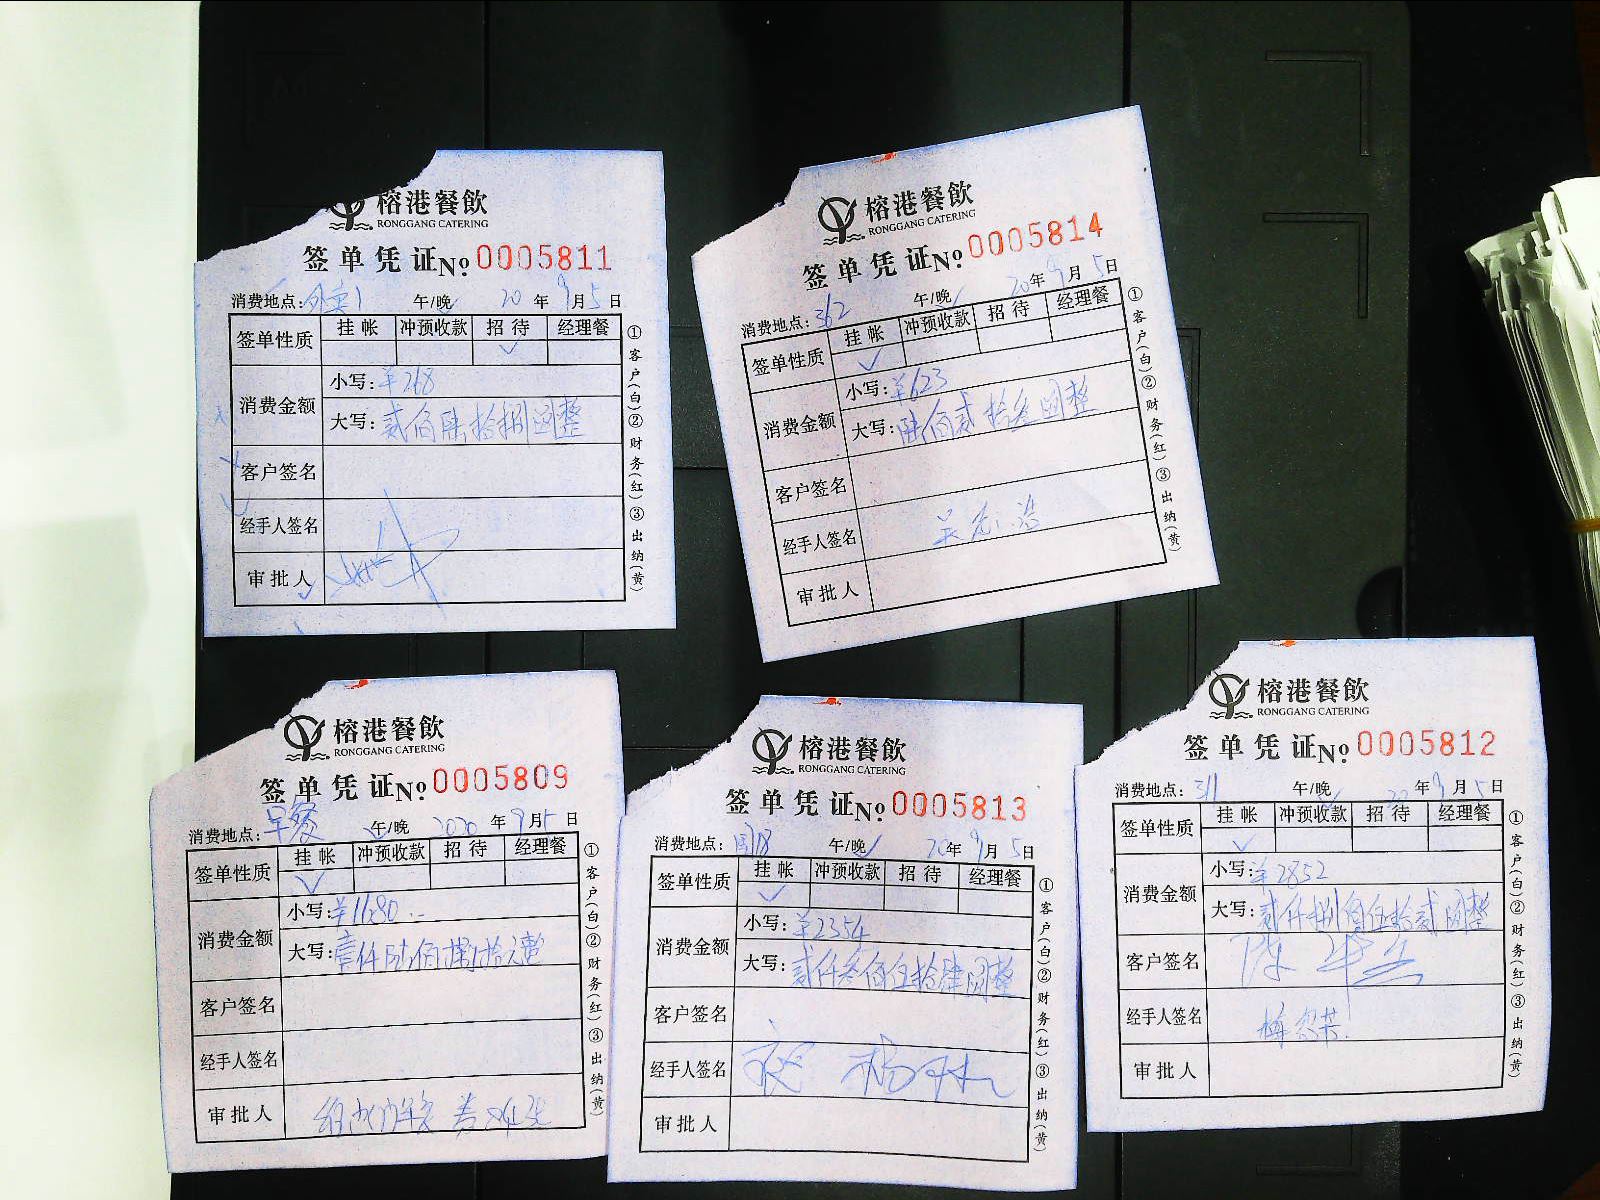 榕港餐飲
RONGGANG CATERING
签单凭证No. 0005811
消费地点: 外卖1 午/晚 20年9月5日
签单性质 挂帐 冲预收款 招待 经理餐
消费金额 小写: ¥268
大写: 贰佰陆拾捌圆整
客户签名
经手人签名
审批人
①客户(白)②财务(红)③出纳(黄)
榕港餐飲
RONGGANG CATERING
签单凭证No. 0005814
消费地点: 362 午/晚 20年9月5日
签单性质 挂帐 冲预收款 招待 经理餐
消费金额 小写: ¥623
大写: 陆佰贰拾叁圆整
客户签名
经手人签名
审批人
①客户(白)②财务(红)③出纳(黄)
榕港餐飲
RONGGANG CATERING
签单凭证No. 0005809
消费地点: 早餐 午/晚 2020年9月5日
签单性质 挂帐 冲预收款 招待 经理餐
消费金额 小写: ¥1680.-
大写: 壹仟陆佰捌拾元整
客户签名
经手人签名
审批人
①客户(白)②财务(红)③出纳(黄)
榕港餐飲
RONGGANG CATERING
签单凭证No. 0005813
消费地点: 午/晚 20年9月5日
签单性质 挂帐 冲预收款 招待 经理餐
消费金额 小写: ¥2354
大写: 贰仟叁佰伍拾肆圆整
客户签名
经手人签名
审批人
①客户(白)②财务(红)③出纳(黄)
榕港餐飲
RONGGANG CATERING
签单凭证No. 0005812
消费地点: 311 午/晚 20年9月5日
签单性质 挂帐 冲预收款 招待 经理餐
消费金额 小写: ¥2852
大写: 贰仟捌佰伍拾贰圆整
客户签名
经手人签名
审批人
①客户(白)②财务(红)③出纳(黄)